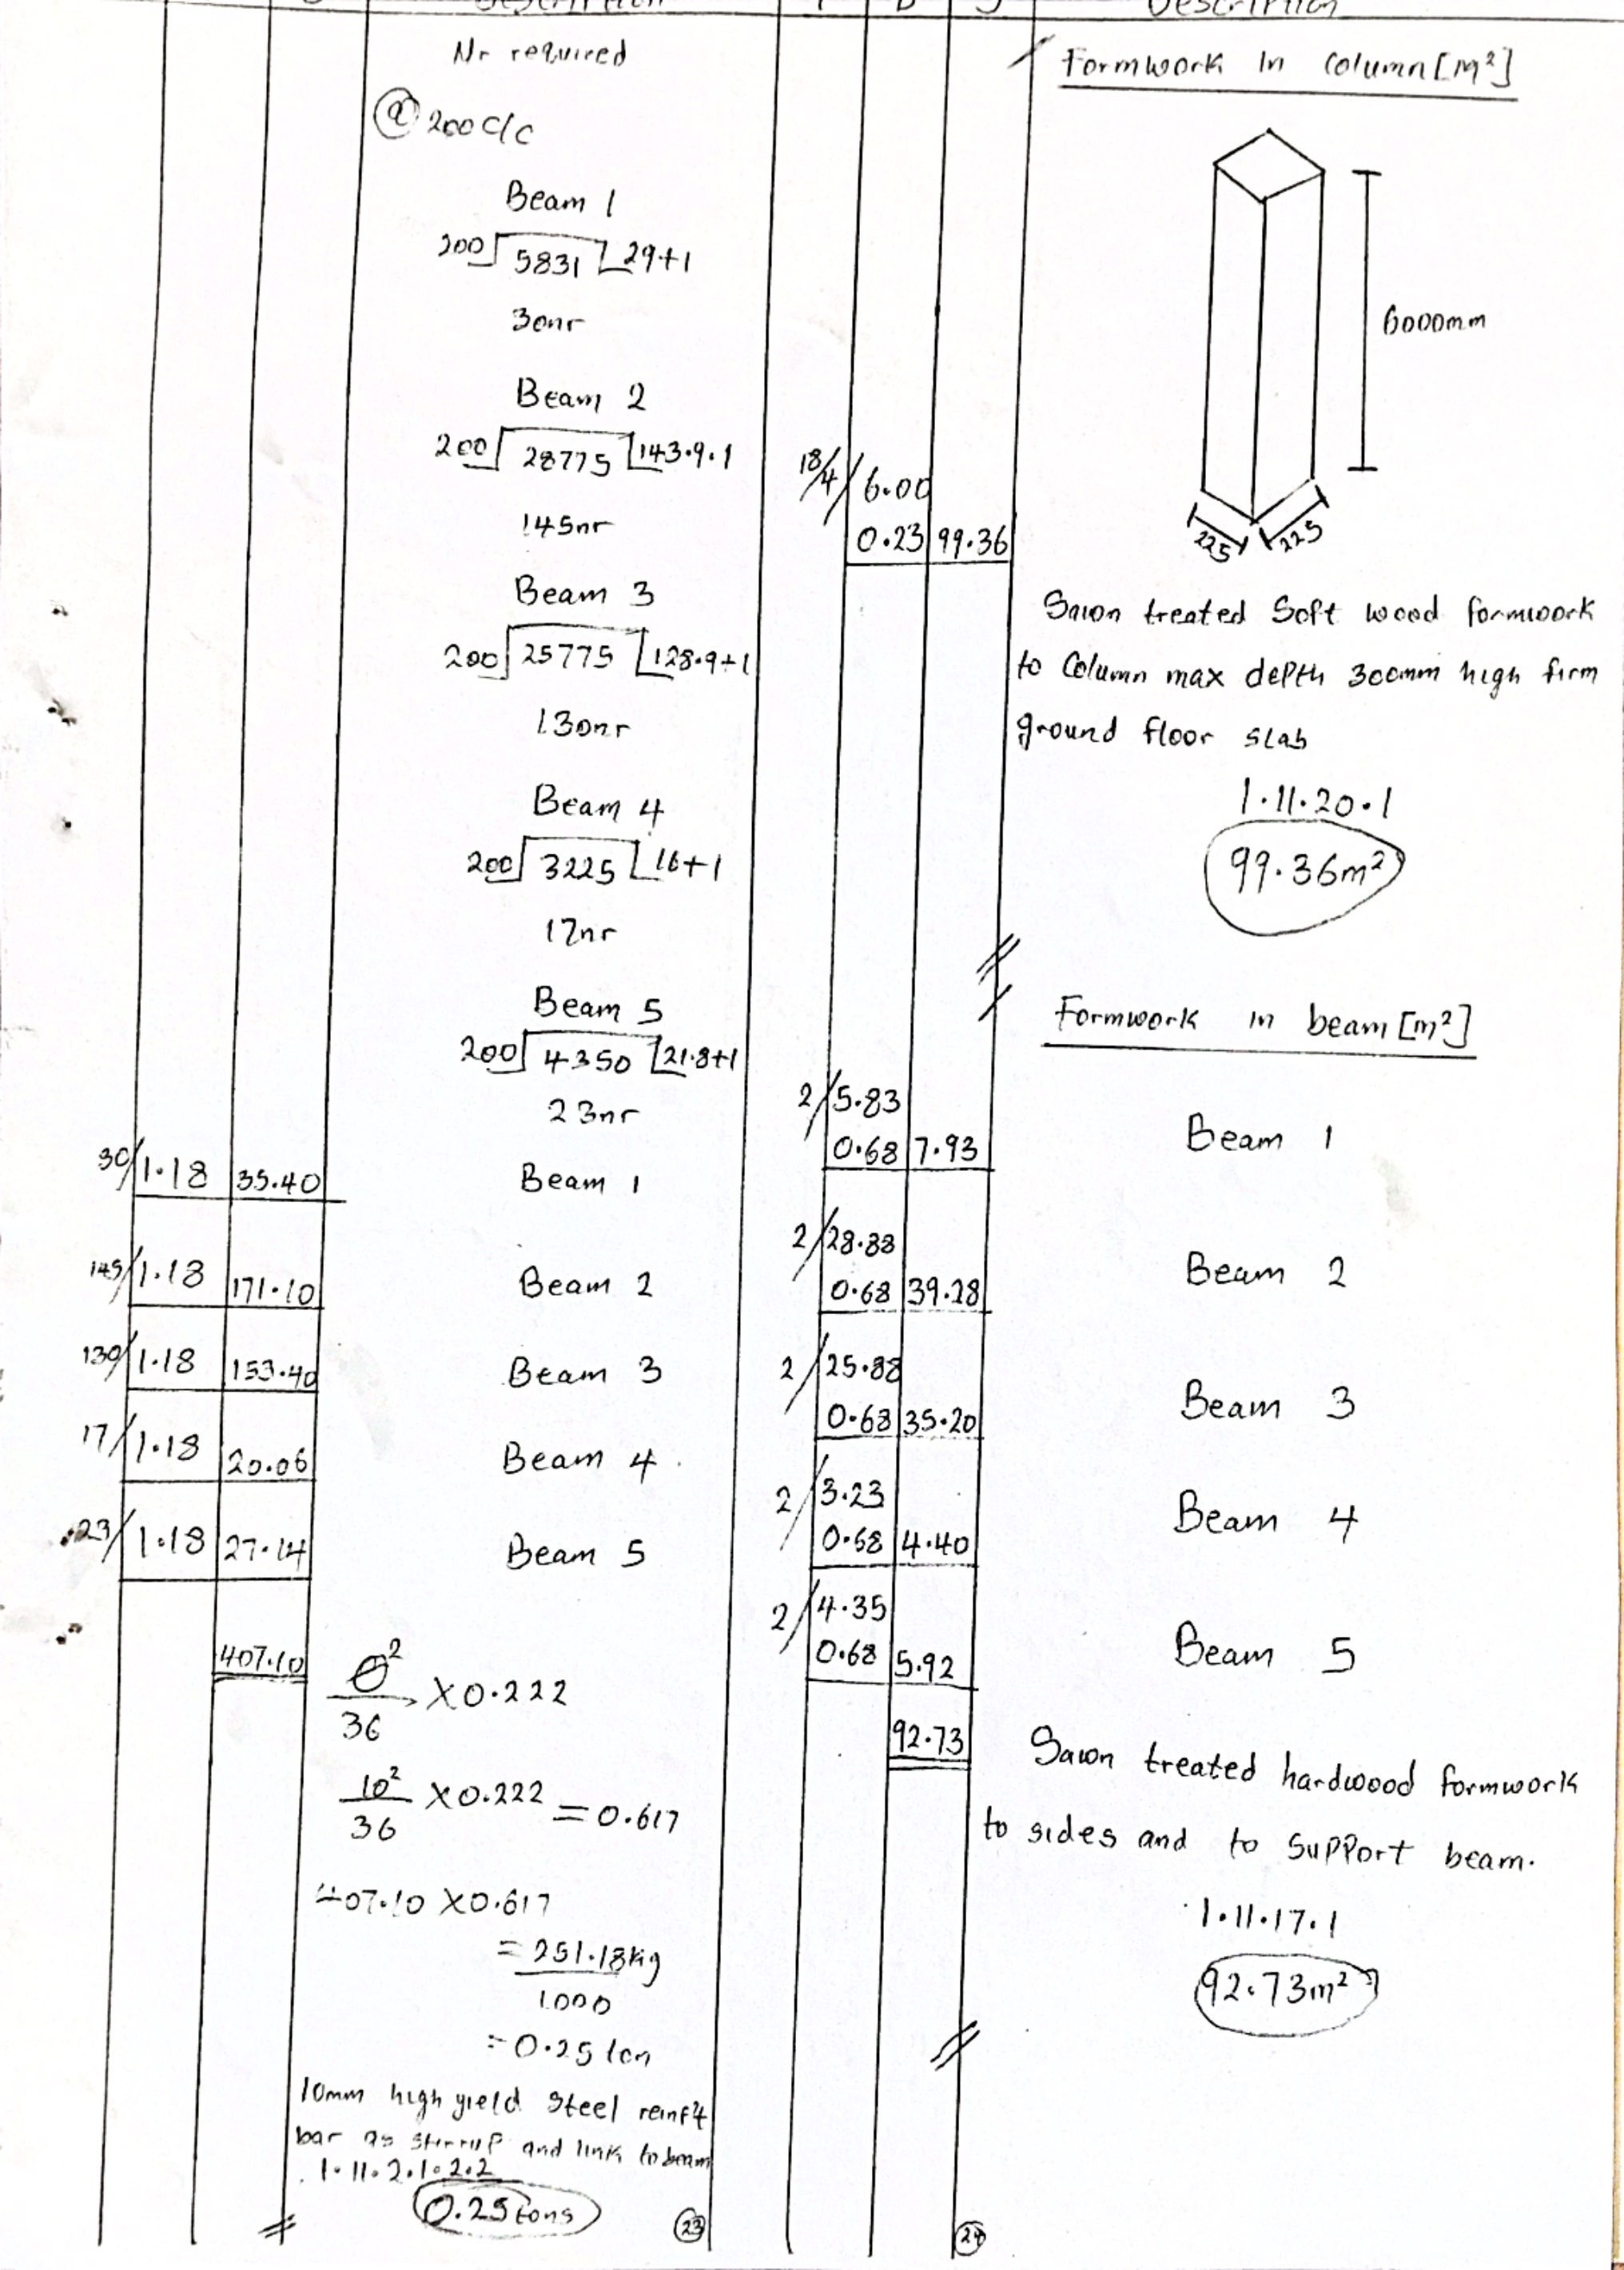 Description
Nr required
@ 200 C/C
Beam 1
200 5831 29+1
30nr
Beam 2
200 28775 143.9.1
145nr
Beam 3
200 25775 128.9+1
130nr
Beam 4
200 3225 16+1
17nr
Beam 5
200 4350 21.8+1
23nr
30/ 1.18 35.40 Beam 1
145/ 1.18 171.10 Beam 2
130/ 1.18 153.40 Beam 3
17/ 1.18 20.06 Beam 4
23/ 1.18 27.14 Beam 5
407.10
Ø²
36 × 0.222
10²
36 × 0.222 = 0.617
407.10 × 0.617
= 251.18kg
1000
= 0.25 ton
10mm high yield steel reinf't
bar as stirrup and link to beam
1.11.2.1.2.2
0.25 tons
23
Description
Formwork in Column [m²]
6000mm
225 225
18/4/ 6.00
0.23 99.36
Sawn treated Soft wood formwork
to Column max depth 300mm high firm
ground floor slab
1.11.20.1
99.36m²
Formwork in beam [m²]
2/ 5.83
0.68 7.93 Beam 1
2/ 28.88
0.68 39.28 Beam 2
2/ 25.88
0.68 35.20 Beam 3
2/ 3.23
0.68 4.40 Beam 4
2/ 4.35
0.68 5.92 Beam 5
92.73
Sawn treated hardwood formwork
to sides and to support beam.
1.11.17.1
92.73m²
24